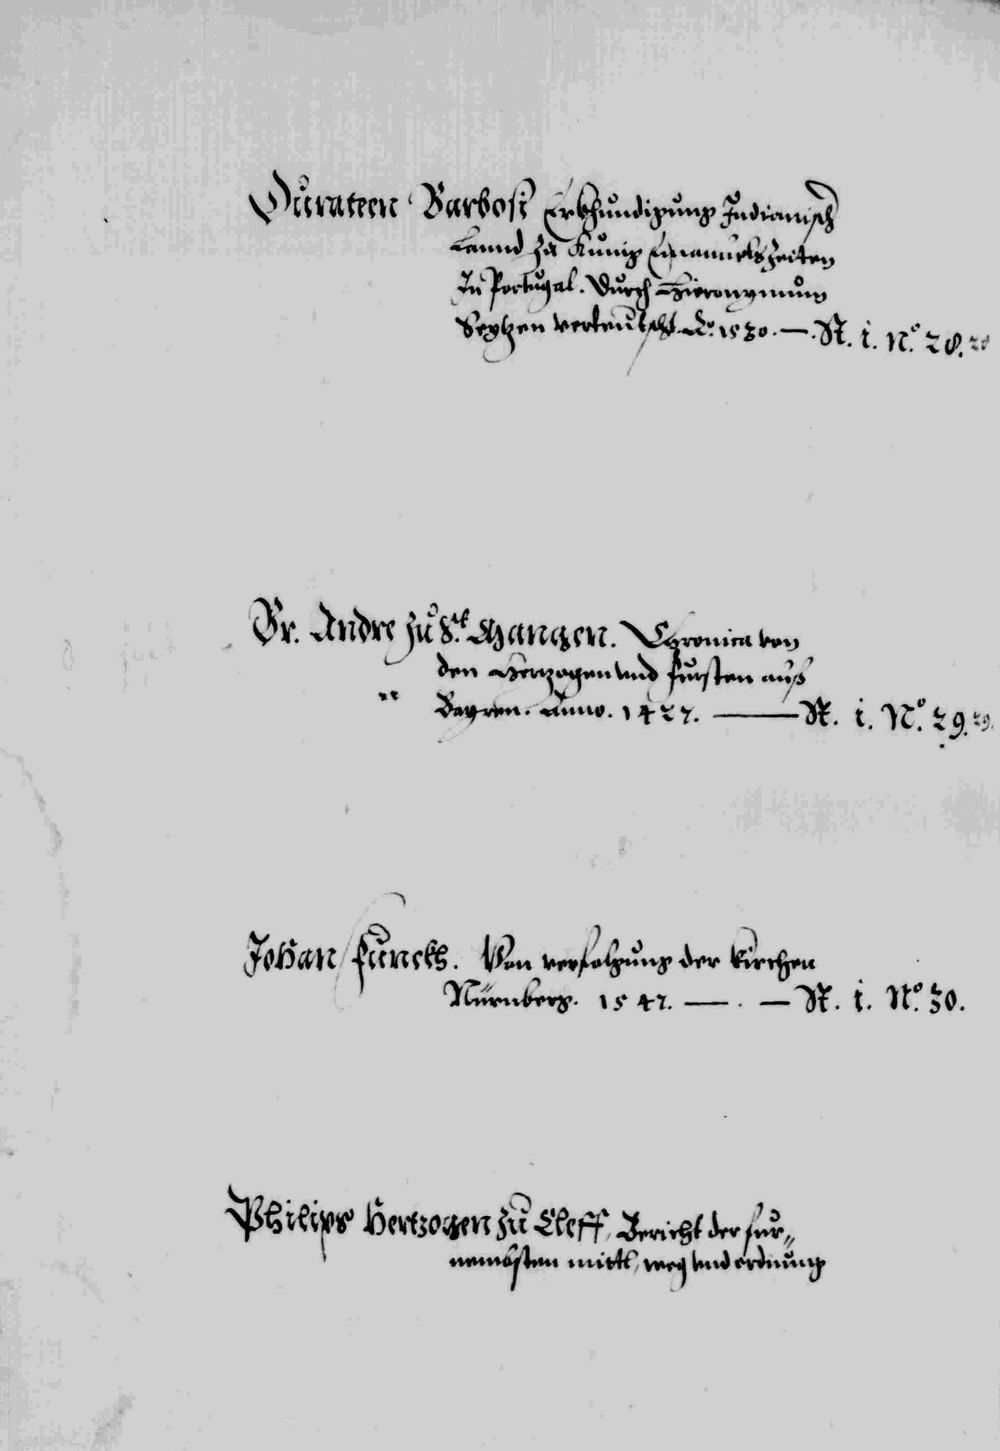 Durateen Barbosi Erkhundigung Indianisch
Lannd zu Künig Emanuels Zeiten
In Portugal. Durch Hieronymum
Seytzen verteutscht. Ao. 1530. —. St. i. No. 28. 28
Br. Andre zu S. Mangen. Chronica von
den Hertzogen und Fürsten auß
Bayren. Anno. 1427. — St. i. No. 29. 29.
Johan Funckh. Von verfolgung der kirchen
Nürnberg. 1547. — . — St. i. No. 30.
Philips Hertzogen zu Cleff, Bericht der für„
nembsten mittl, weg und ordnung